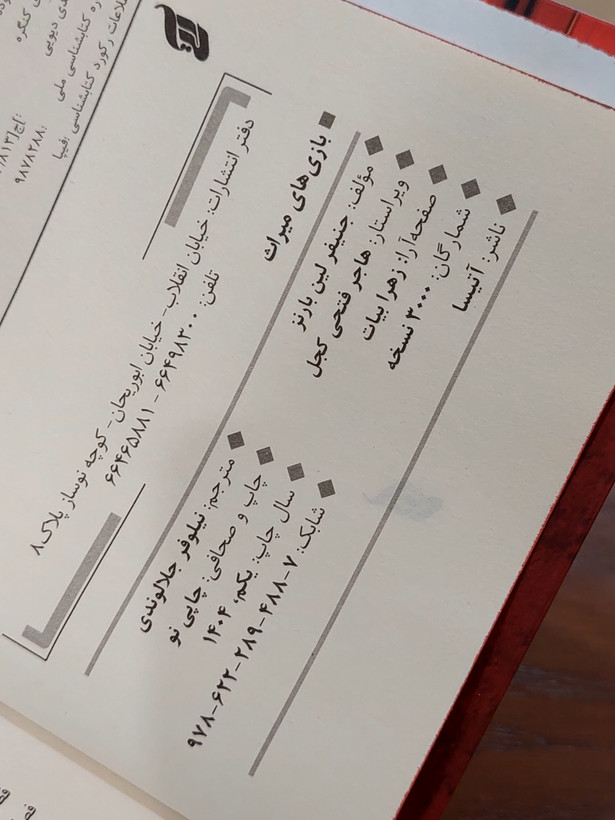 ره کتابشناسی ملی
لاعات رکورد کتابشناسی: فیپا
بازی‌های میراث
مؤلف: جنیفر لین بارنز
مترجم: نیلوفر جلالوندی
ویراستار: هاجر فتحی کجل
چاپ و صحافی: چاپی نو
صفحه‌آرا: زهرا بیات
سال چاپ: یکم، ۱۴۰۴
شمارگان: ۳۰۰۰ نسخه
شابک: ۷-۴۸۸-۲۸۹-۶۲۲-۹۷۸
ناشر: آتیسا
دفتر انتشارات: خیابان انقلاب- خیابان ابوریحان- کوچه نوساز پلاک۸
تلفن: ۶۶۴۹۸۳۰۰ - ۶۶۴۶۵۸۸۱